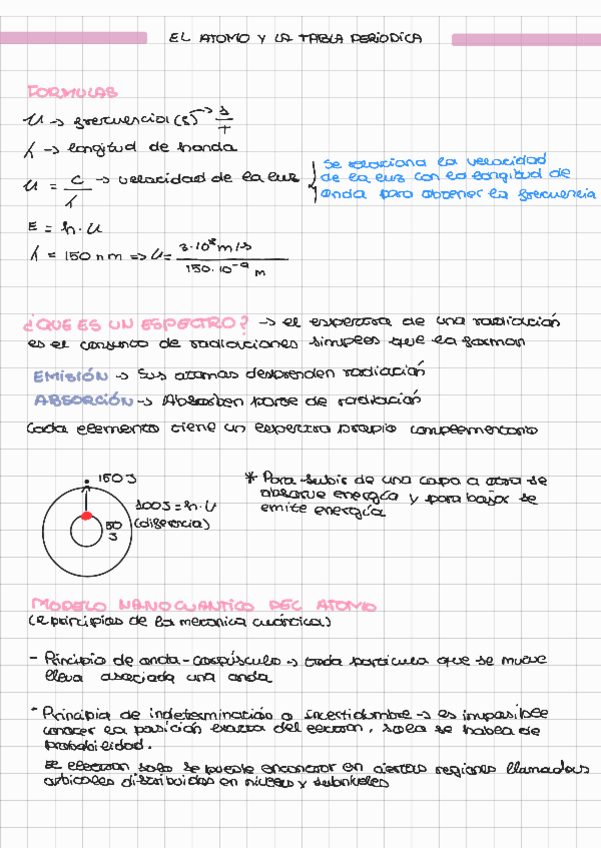 EL ATOMO Y LA TABLA PERIODICA
FORMULAS
υ → frecuencia (s) → s/T
λ → longitud de honda
υ = c/λ → velocidad de la luz
Se relaciona la velocidad
de la luz con la longitud de
onda para obtener la frecuencia
E = h · υ
λ = 150 nm => υ = 3·10⁸ m/s / 150·10⁻⁹ m
¿QUE ES UN ESPECTRO? → el espectro de una radiación
es el conjunto de radiaciones simples que la forman
EMISIÓN → Sus atomos desprenden radiación
ABSORCIÓN → Absorben parte de radiación
Cada elemento tiene un espectro propio complementario
150 J
100J = h · υ
(diferencia)
50
J
* Para subir de una capa a otra se
absorve energía y para bajar se
emite energía
MODELO NANOCUANTICO DEL ATOMO
(2 principios de la mecanica cuántica)
- Principio de onda-corpúsculo → toda particula que se mueve
lleva asociada una onda
- Principio de indeterminación o incertidumbre → es imposible
conocer la posición exacta del electron, solo se habla de
probabilidad.
El electron solo se puede encontrar en ciertas regiones llamadas
orbitales distribuidos en niveles y subniveles